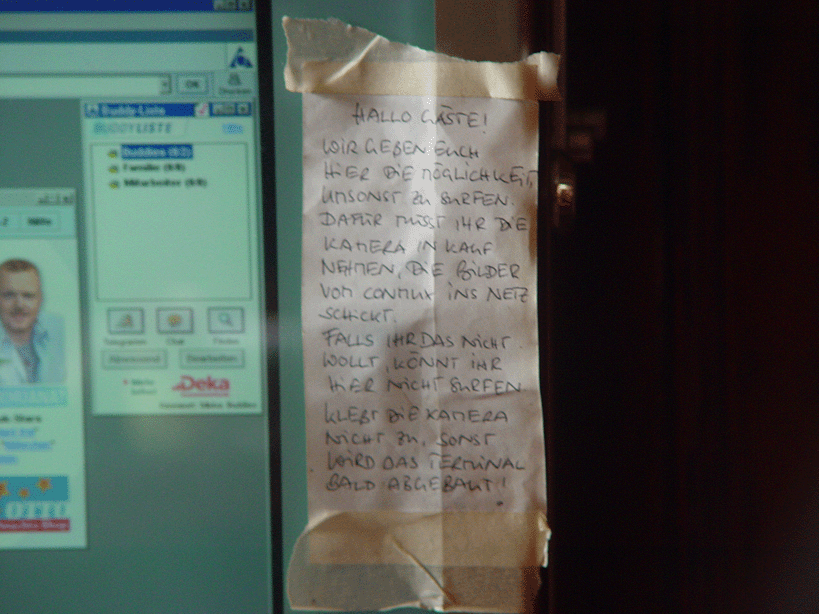 OK
Drucken
Buddy-Liste
BUDDYLISTE
Hilfe
Buddies (0/2)
Familie (0/0)
Mitarbeiter (0/0)
Telegramm Chat Finden
Abwesend Bearbeiten
Deka
LOTTO
HALLO GÄSTE!
WIR GEBEN EUCH
HIER DIE MÖGLICHKEIT,
UMSONST ZU SURFEN.
DAFÜR MÜSST IHR DIE
KAMERA IN KAUF
NEHMEN, DIE BILDER
VOM CONMUX INS NETZ
SCHICKT.
FALLS IHR DAS NICHT
WOLLT, KÖNNT IHR
HIER NICHT SURFEN
KLEBT DIE KAMERA
NICHT ZU, SONST
WIRD DAS TERMINAL
BALD ABGEBAUT!